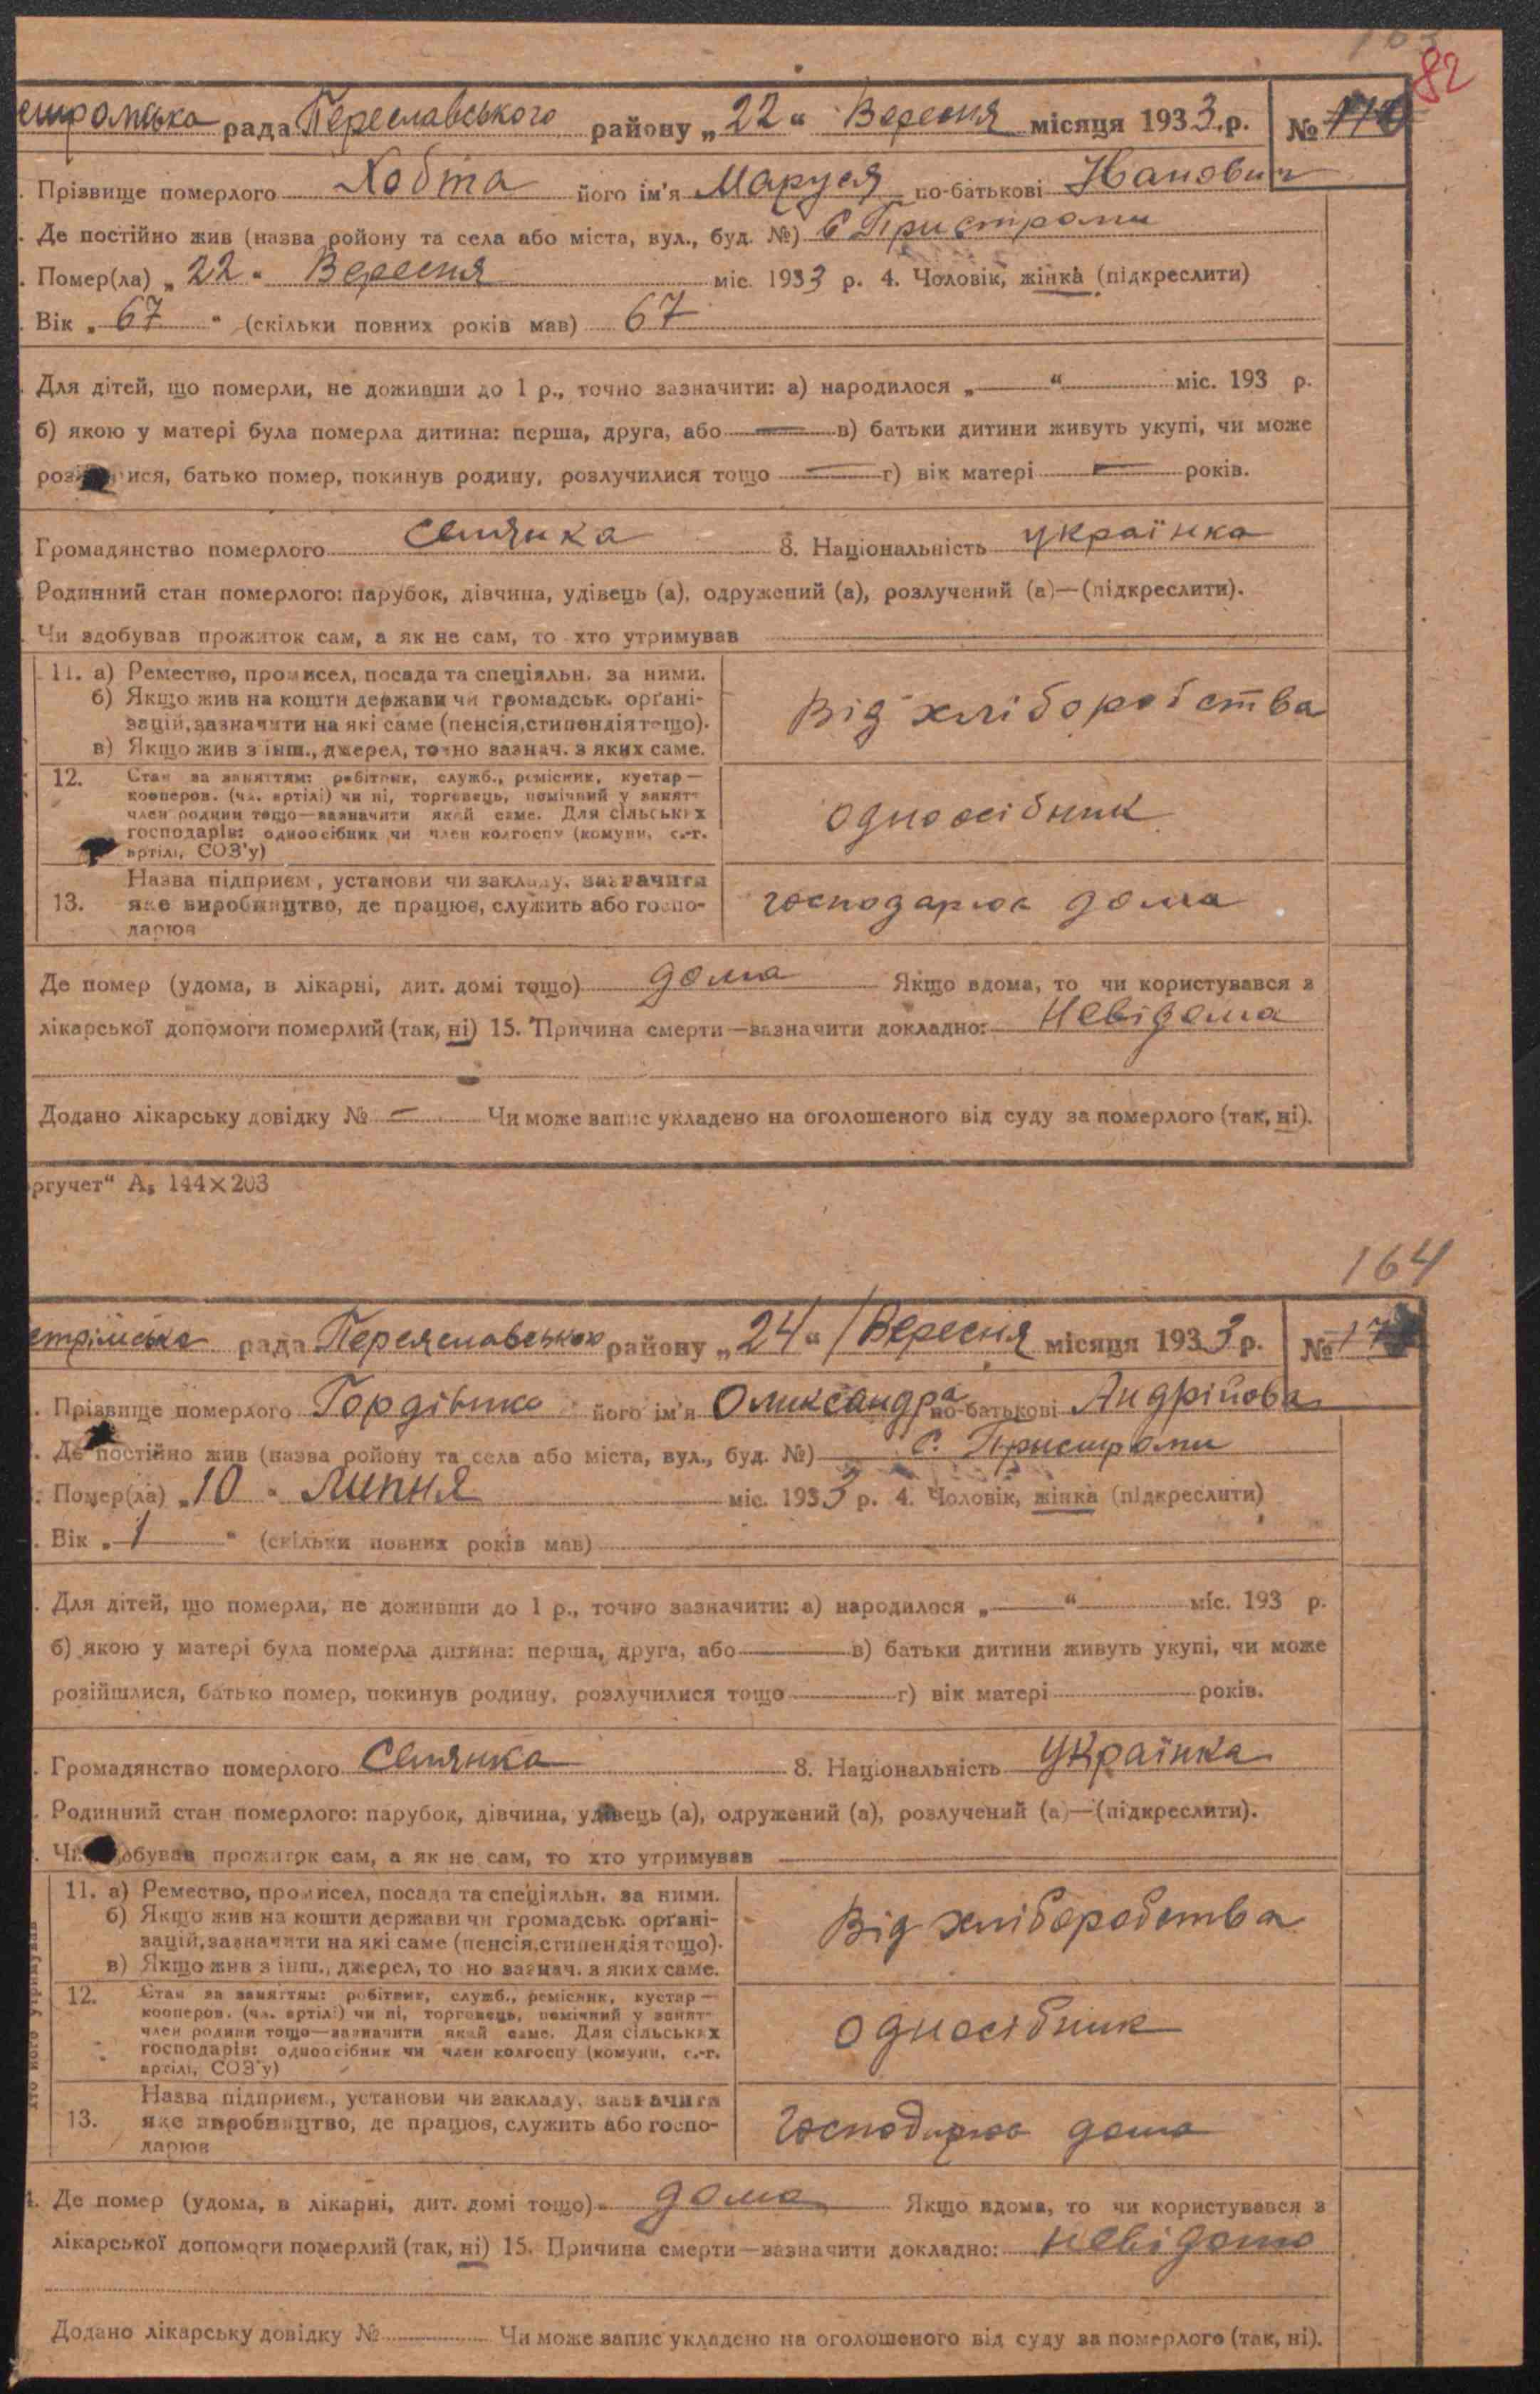 82
стромська рада Переславського району „ 22 “ Вересня місяця 1933 р. №
Прізвище померлого Хобта його ім'я Маруся по-батькові
Де постійно жив (назва ройону та села або міста, вул., буд. №) с Пристроми
Помер(ла) „ 22 “ Вересня міс. 1933 р. 4. Чоловік, жінка (підкреслити)
Вік „ 67 “ (скільки повних років мав) 67
Для дітей, що померли, не доживши до 1 р., точно зазначити: а) народилося „ — “ міс. 193 р.
б) якою у матері була померла дитина: перша, друга, або — в) батьки дитини живуть укупі, чи може
роз ися, батько помер, покинув родину, розлучилися тощо — г) вік матері — років.
Громадянство померлого селянка 8. Національність українка
Родинний стан померлого: парубок, дівчина, удівець (а), одружений (а), розлучений (а)—(підкреслити).
Чи здобував прожиток сам, а як не сам, то хто утримував
11. а) Ремество, промисел, посада та спеціяльн. за ними.
б) Якщо жив на кошти держави чи громадськ. органі-
зацій, зазначити на які саме (пенсія, стипендія тощо).
в) Якщо жив з інш., джерел, точно зазнач. з яких саме.
Від хліборобства
12. Стан за заняттям: робітник, служб., ремісник, кустар—
кооперов. (чл. артілі) чи ні, торговець, помічний у занят-
член родини тощо—зазначити який саме. Для сільських
господарів: одноосібник чи член колгоспу (комуни, с.-г.
артілі, СОЗ'у)
одноосібник
13. Назва підприєм., установи чи закладу, зазначити
яке виробництво, де працює, служить або госпо-
дарює
господарює дома
Де помер (удома, в лікарні, дит. домі тощо) дома Якщо вдома, то чи користувався з
лікарської допомоги померлий (так, ні) 15. Причина смерти—зазначити докладно: Невідома
Додано лікарську довідку № — Чи може запис укладено на оголошеного від суду за померлого (так, ні).
ргучет“ А5 144×203
164
стрімська рада Переяславського району „ 24 “ Вересня місяця 1933 р. №
Прізвище померлого Гордієнко його ім'я Олександра по-батькові Андрійова
Де постійно жив (назва ройону та села або міста, вул., буд. №) с. Пристроми
Помер(ла) „ 10 “ Липня міс. 1933 р. 4. Чоловік, жінка (підкреслити)
Вік „ 1 “ (скільки повних років мав)
Для дітей, що померли, не доживши до 1 р., точно зазначити: а) народилося „ — “ міс. 193 р.
б) якою у матері була померла дитина: перша, друга, або — в) батьки дитини живуть укупі, чи може
розійшлися, батько помер, покинув родину, розлучилися тощо — г) вік матері років.
Громадянство померлого Селянка 8. Національність Українка
Родинний стан померлого: парубок, дівчина, удівець (а), одружений (а), розлучений (а)—(підкреслити).
Чи обував прожиток сам, а як не сам, то хто утримував
11. а) Ремество, промисел, посада та спеціяльн. за ними.
б) Якщо жив на кошти держави чи громадськ. органі-
зацій, зазначити на які саме (пенсія, стипендія тощо).
в) Якщо жив з інш., джерел, точно зазнач. з яких саме.
Від хліборобства
12. Стан за заняттям: робітник, служб., ремісник, кустар—
кооперов. (чл. артілі) чи ні, торговець, помічний у занят-
член родини тощо—зазначити який саме. Для сільських
господарів: одноосібник чи член колгоспу (комуни, с.-г.
артілі, СОЗ'у)
односібник
13. Назва підприєм., установи чи закладу, зазначити
яке виробництво, де працює, служить або госпо-
дарює
господарює дома
Де помер (удома, в лікарні, дит. домі тощо) дома Якщо вдома, то чи користувався з
лікарської допомоги померлий (так, ні) 15. Причина смерти—зазначити докладно: невідома
Додано лікарську довідку № Чи може запис укладено на оголошеного від суду за померлого (так, ні).